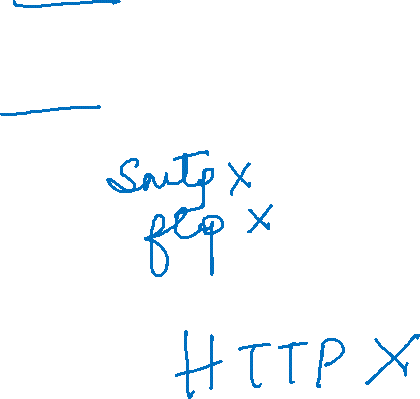 Smtp X
ftp X
HTTP X